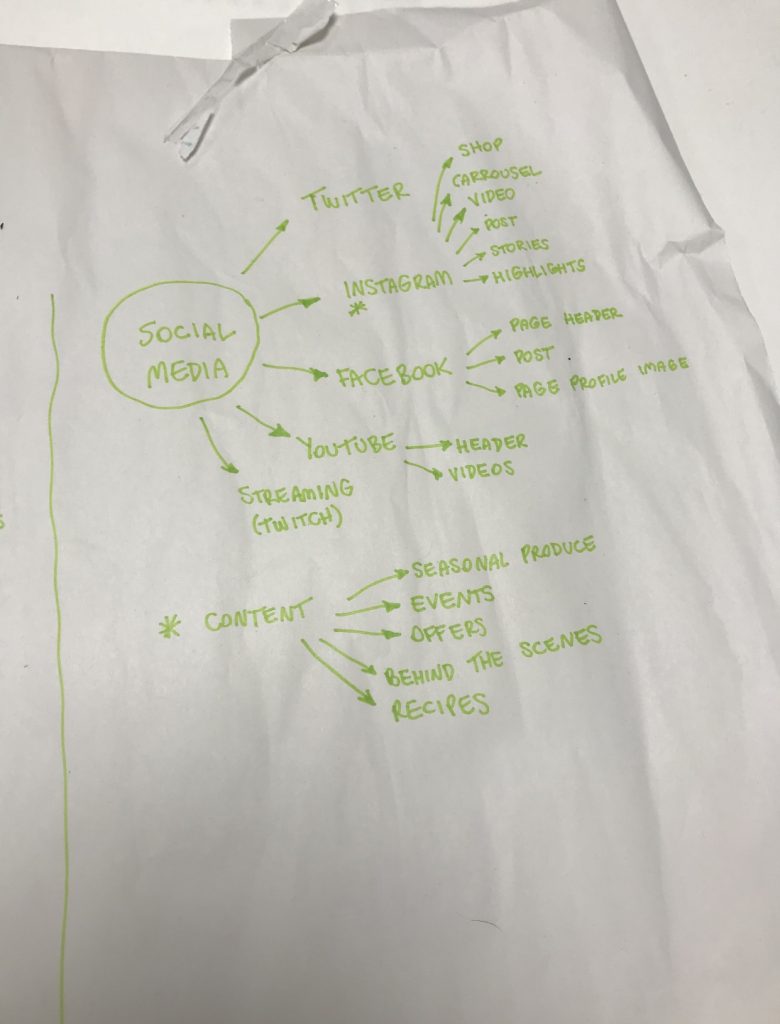 SHOP
CARROUSEL
TWITTER
VIDEO
POST
STORIES
INSTAGRAM
HIGHLIGHTS
*
SOCIAL
MEDIA
PAGE HEADER
FACEBOOK
POST
PAGE PROFILE IMAGE
YOUTUBE
HEADER
VIDEOS
STREAMING
(TWITCH)
* CONTENT
SEASONAL PRODUCE
EVENTS
OFFERS
BEHIND THE SCENES
RECIPES